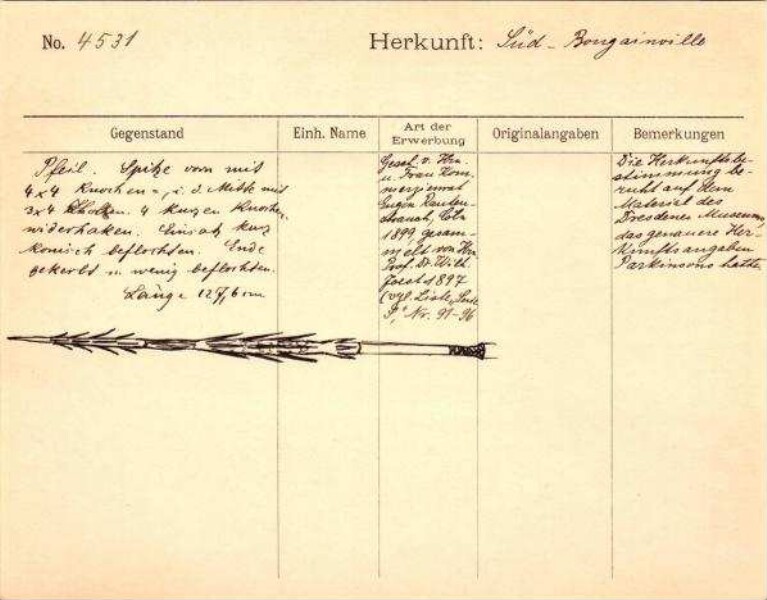 No. 4531
Herkunft: Süd-Bougainville
Gegenstand
Einh. Name
Art der Erwerbung
Originalangaben
Bemerkungen
Pfeil. Spitze vorn mit
4x4 Knochen-, i. d. Mitte mit
3x4 4 kurzen Knochen-
widerhaken. Einsatz kurz
konisch beflochten. Ende
gekerbt u. wenig beflochten.
Länge 127,6 cm
Gesch. v. Hrn.
u. Frau Kom-
merzienrat
Eugen Rauten-
strauch, Cöln
1899, gesam-
melt von Hrn
Prof. Dr. Wilh.
Joest 1897
(vgl. Liste
Nr. 91-96
Die Herkunftsbe-
stimmung be-
ruht auf dem
Material des
Dresdener Museums,
das genauere Her-
kunftsangaben
Parkinsons hatte.